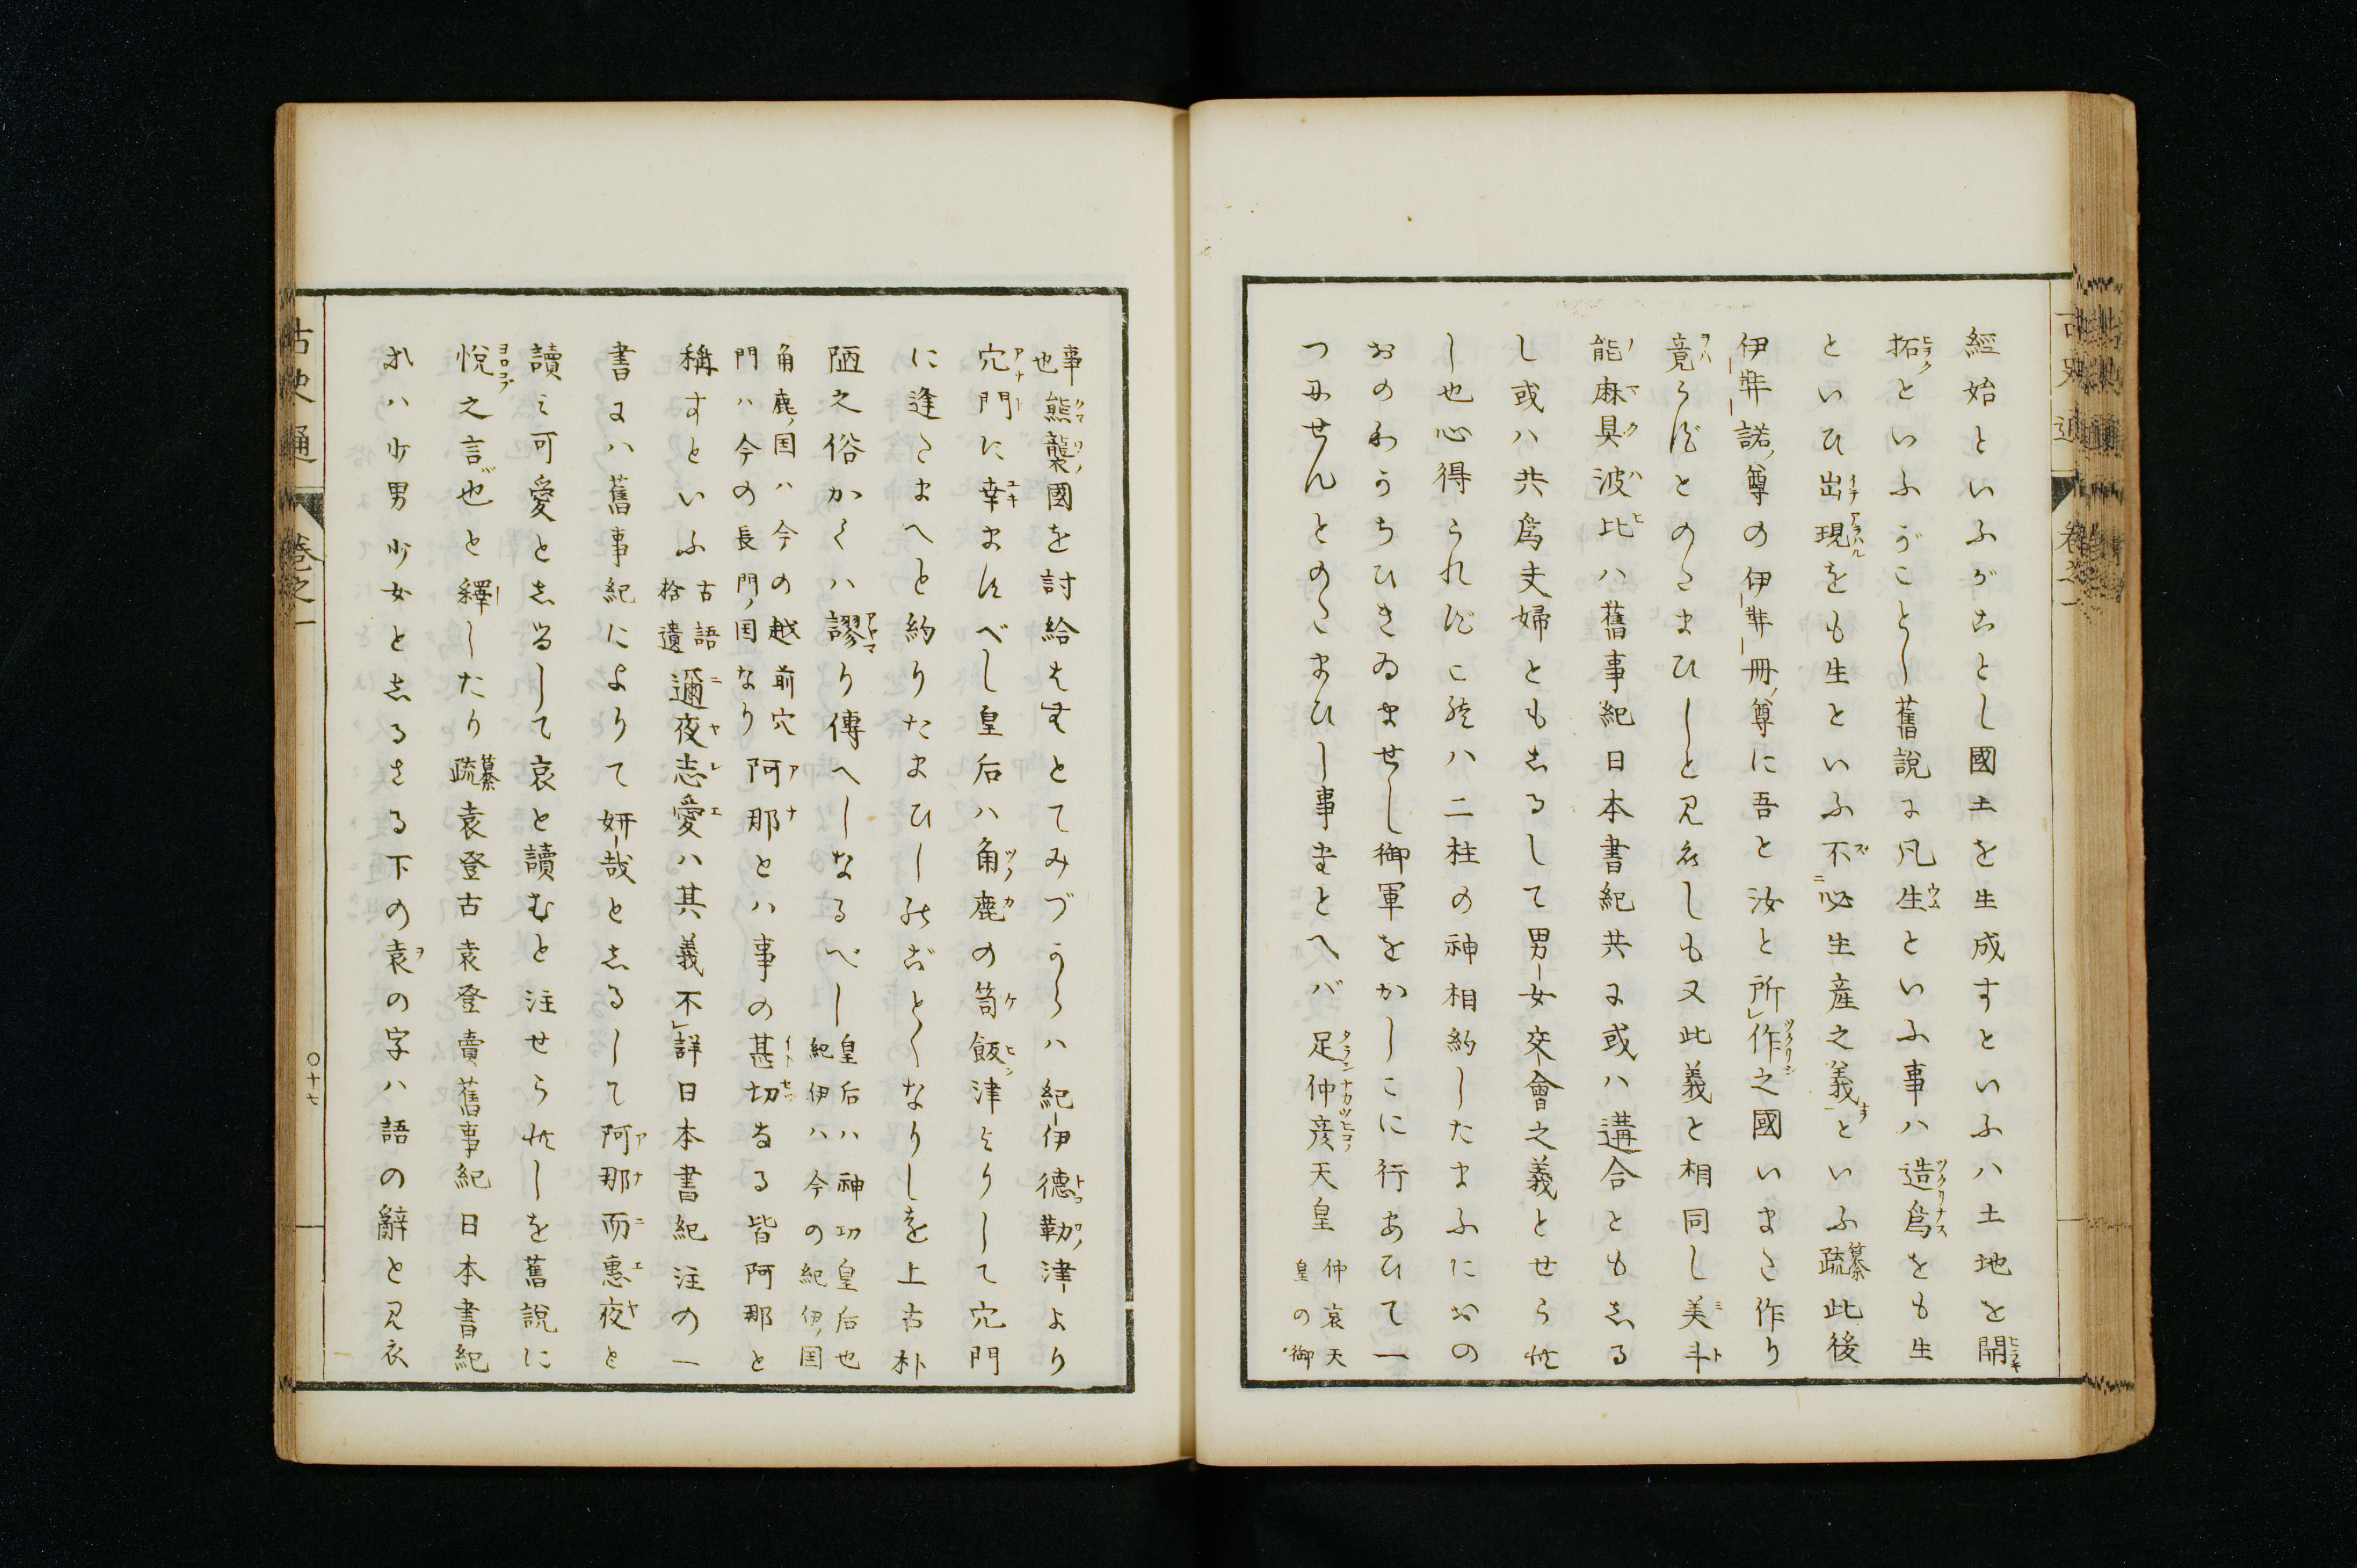 經始といふがことし國土を生成すといふハ土地を開
拓といふがことし舊說に凡生といふ事ハ造爲をも生
といひ出現をも生といふ不必生産之義といふ纂疏此後
伊弉諾尊の伊弉冊尊に吾と汝と所作之國いまた作り
竟らずとのたまひしと見えしも又此義と相同し美斗
能麻具波比ハ舊事紀日本書紀共に或ハ遘合ともしる
し或ハ共爲夫婦ともしるして男女交會之義とせられ
し也心得られずこれハ二柱の神相約したまふにおの
おのわうちひきゐませし御軍をかしこに行あひて一
つにせんとのたまひし事たとへバ足仲彦天皇仲哀天皇の御
事也熊襲國を討給はむとてみづからハ紀伊德勒津より
穴門に幸ますべし皇后ハ角鹿の笥飯津よりして穴門
に逢たまへと約りたまひしがごとくなりしを上古朴
陋之俗かくハ謬り傳へしなるべし皇后ハ神功皇后也紀伊ハ今の紀伊國
角鹿國ハ今の越前穴門ハ今の長門國なり阿那とハ事の甚切なる皆阿那と
稱すといふ古語拾遺邇夜志愛ハ其義不詳日本書紀注の一
書にハ舊事紀によりて妍哉としるして阿那而惠夜と
讀ミ可愛としるして哀と讀むと注せられしを舊說に
悅之言也と釋したり纂疏袁登古袁登賣舊事紀日本書紀
並ハ少男少女としるせる下の袁の字ハ語の辭と見え
古史通
卷之一
〇十七
古史通
卷之一